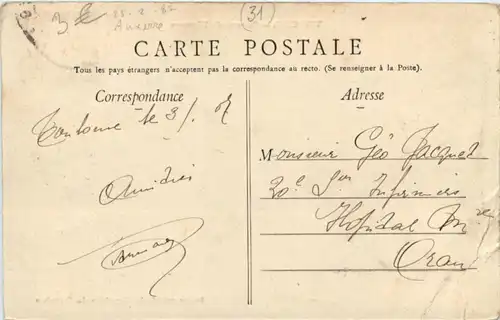 3 €
31
CARTE POSTALE
Tous les pays étrangers n'acceptent pas la correspondance au recto. (Se renseigner à la Poste).
Correspondance
Toulouse le 3/
Amitiés
Adresse
Monsieur Géo Jacquet
20e Son Infirmiers
Hôpital Mre
Oran